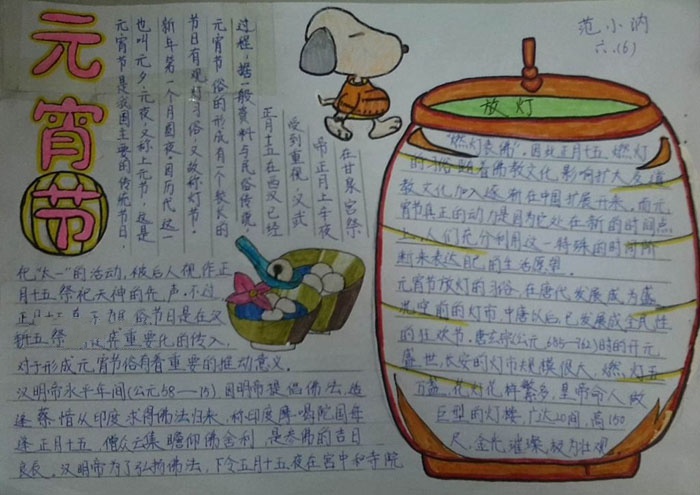 元宵节
范小汭
六.(6)
元宵节是我国主要的传统节日，
也叫元夕、元夜，又称上元节，这是
新年第一个月圆夜。因历代这一
节日有观灯习俗，又故称灯节。
元宵节俗的形成有一个较长的
过程，据一般资料与民俗传说，
正月十五在西汉已经
受到重视，汉武
帝正月上辛夜
在甘泉宫祭
化"太一"的活动，被后人视作正
月十五祭祀天神的先声。不过
正月十五 下 俗节日是在汉
祈五祭 重要化的传入，
对于形成元宵节俗有着重要的推动意义。
汉明帝永平年间（公元58—15）因明帝提倡佛法，
逢蔡愔从印度求得佛法归来，称印度摩喝陀国每
逢正月十五，僧众云集瞻仰佛舍利，是参佛的吉日
良辰，汉明帝为了弘扬佛法，下令正月十五夜在宫中和寺院
放灯
"燃灯表佛"。因此正月十五燃灯
的习俗随着佛教文化影响扩大及道
教文化加入逐渐在中国扩展开来，而元
宵节真正的动力是因为它处在新的时间点
上，人们充分利用这一特殊的时间阶
段来表达 的生活愿望。
元宵节放灯的习俗，在唐代发展成为盛
况空前的灯市，中唐以后，已发展成全民性
的狂欢节。唐玄宗（公元685—762）时的开元
盛世，长安的灯市规模很大，燃灯五
万盏，花灯花样繁多，皇帝命人做
巨型的灯楼，广达20间，高150
尺，金光璀璨，极为壮观